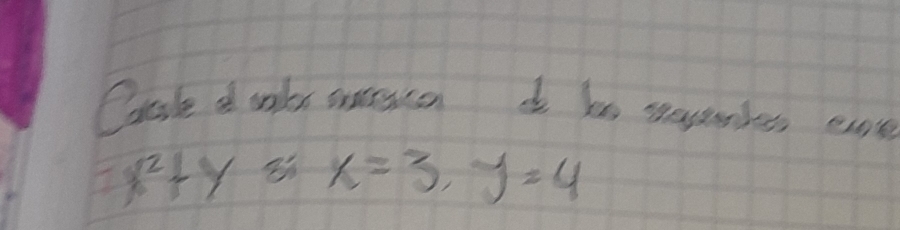 Calcule el valor numérico de los siguientes
x²+y si x=3, y=4